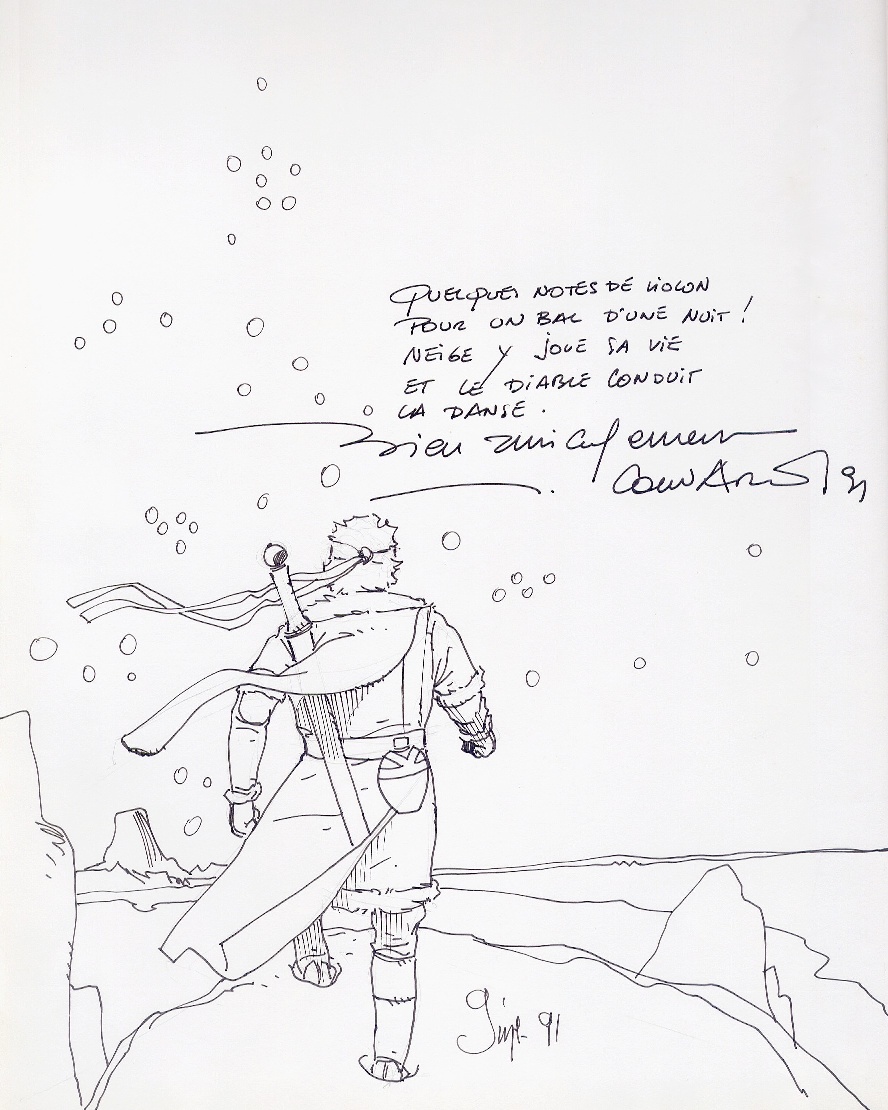 QUELQUES NOTES DE VIOLON
POUR UN BAL D'UNE NUIT !
NEIGE Y JOUE SA VIE
ET LE DIABLE CONDUIT
LA DANSE.
Bien amicalement
CONVARD 91
Gine 91